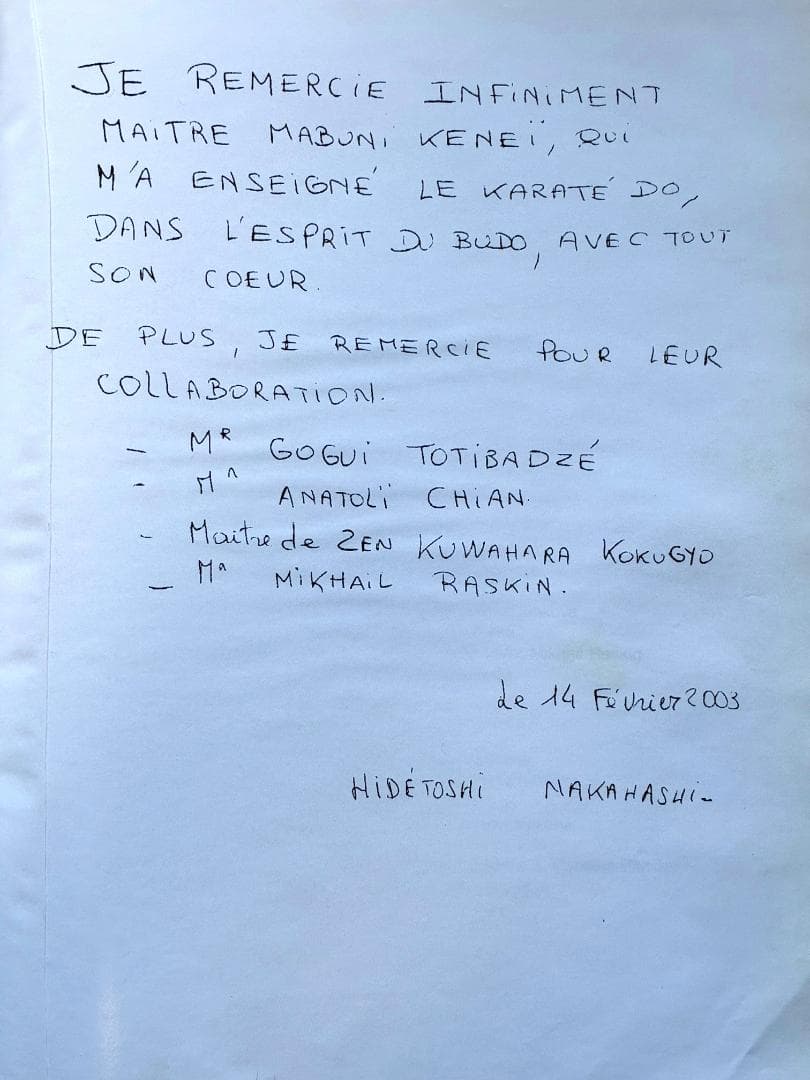 JE REMERCIE INFINIMENT
MAITRE MABUNI KENEÏ, QUI
M'A ENSEIGNÉ LE KARATÉ DO,
DANS L'ESPRIT DU BUDO, AVEC TOUT
SON COEUR.
DE PLUS, JE REMERCIE POUR LEUR
COLLABORATION.
- MR GOGUI TOTIBADZÉ
- MR ANATOLÏ CHIAN.
- Maitre de ZEN KUWAHARA KOKUGYO
- MR MIKHAIL RASKIN.
Le 14 Février 2003
HIDÉTOSHI NAKAHASHI-